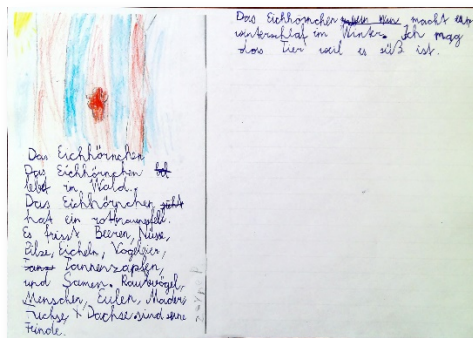 Das Eichhörnchen
Das Eichhörnchen
lebt in Wald.
Das Eichhörnchen
hat ein rotbraunesfell.
Es frisst Beeren, Nüsse,
Pilze, Eicheln, Vogeleier,
Tannenzapfen,
und Samen. Raubvögel,
Menschen, Eulen, Marder,
Füchse, Dachse sind
Feinde.
Das Eichhörnchen macht
winterschlaf im Winter. Ich mag
das Tier weil es süß ist.